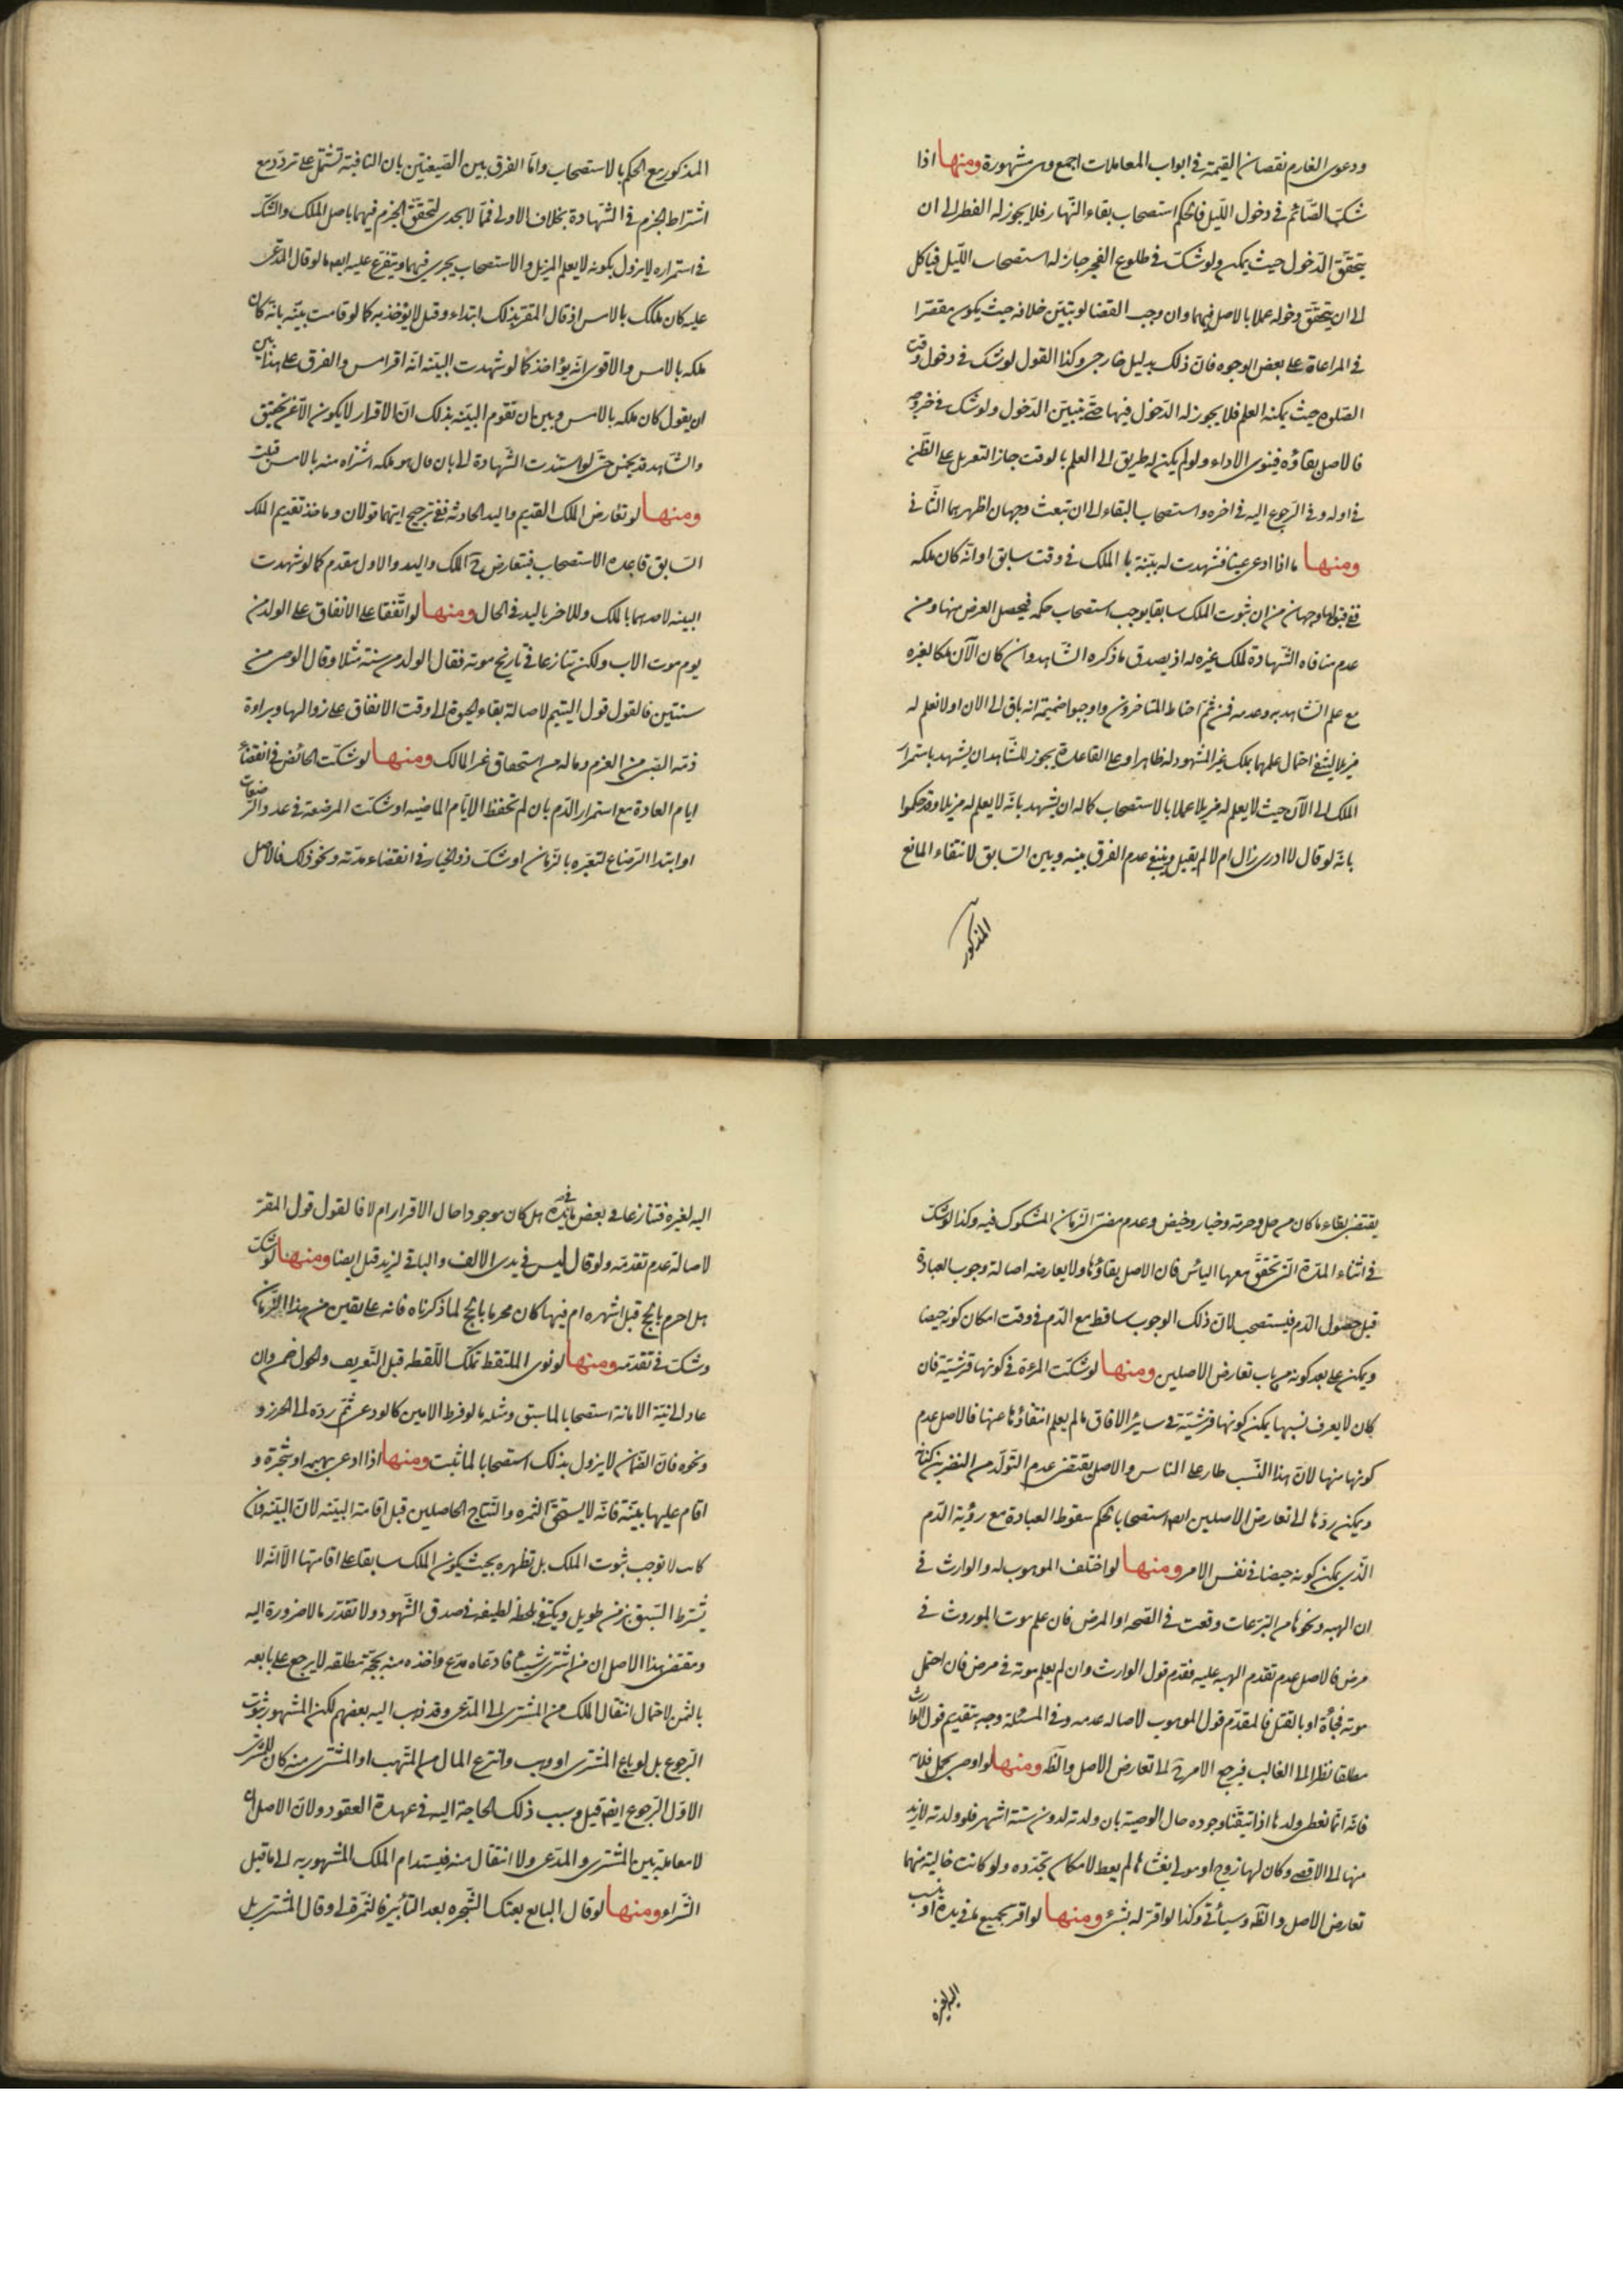 ودعوى الغارم نقصان القيمة في ابواب المعاملات اجمع وهى مشهورة ومنها اذا
شك الصّائم في دخول اللّيل فالحكم استصحاب بقاء النّهار فلا يجوز له الفطر الى ان
يتحقّق الدّخول حيث يمكن ولو شكّ في طلوع الفجر جاز له استصحاب اللّيل فياكل
الى ان يتحقّق دخوله عملا بالاصل فيهما وان وجب القضا لو تبيّن خلافه حيث يكون مقصرا
في المراعاة على بعض الوجوه فانّ ذلك بدليل خارجى وكذا القول لو شك في دخول وقت
الصّلوة حيث يمكنه العلم فلا يجوز له الدّخول فيها حتّى يتبيّن الدّخول ولو شك في خروجه
فالاصل بقاؤه فينوى الاداء ولو لم يكن له طريق الى العلم بالوقت جاز التعويل على الظّن
في اوله وفي الرّجوع اليه في اخره واستصحاب البقاء الى ان تبعث وجهان اظهرهما الثّانى
ومنها ما اذا ادعى عينا فشهدت له بيّنة با الملك في وقت سابق او انّه كان ملكه
ففي قبولها وجهان من ان ثبوت الملك سابقا يوجب استصحاب حكمه فيحصل الغرض منها ومن
عدم منافاه الشّهادة لملك غيره له اذ يصدق ما ذكره الشّاهد وان كان الآن ملكا لغيره
مع علم الشّاهد به وعدمه فمن ثمّ احتاط المتاخرون واوجبوا ضميمة انه باق الى الان او لا نعلم له
مزيلا لينتفى احتمال علمهما بملك غير المشهود له ظاهرا وعلى القاعدة يجوز للشّاهد ان يشهد باستمرار
الملك الى الآن حيث لا يعلم له مزيلا عملا بالاستصحاب كما له ان يشهد بانّه لا يعلم له مزيلا وقد حكموا
بانّه لو قال لا ادرى زال ام لا لم يقبل وينبغى عدم الفرق بينه وبين السّابق لانتفاء المانع
المذكور
المذكور مع الحكم بالاستصحاب وامّا الفرق بين الصّيغتين بان الثانية تشتمل على تردّد مع
اشتراط الجزم في الشّهادة بخلاف الاولى فممّا لا يجدى لتحقّق الجزم فيهما باصل الملك والشّك
في استمراره لا يزول بكونه لا يعلم المزيل والاستصحاب يجرى فيهما ويتفرع عليه ايضا ما لو قال المدّعى
عليه كان ملكك بالامس اذ قال المقر بذلك ابتداء وقيل لا يؤخذ به كما لو قامت بيّنه بانّه كان
ملكه بالامس والاقوى انّه يؤاخذ كما لو شهدت البيّنه انّه اقرامس والفرق على هذا بين
ان يقول كان ملكه بالامس وبين ان تقوم البيّنه بذلك انّ الاقرار لا يكون الّا عن تحقيق
والشّاهد قد يخمن حتّى لو استندت الشّهادة الى بان قال هو ملكه اشتراه منه بالامس قبلت
ومنها لو تعارض الملك القديم واليد الحادثه ففي ترجيح ايّهما قولان وماخذ تقديم الملك
السّابق قاعدة الاستصحاب فيتعارض في الملك واليد والاول مقدم كما لو شهدت
البينه لاحدهما بالملك وللاخر باليد في الحال ومنها لو اتّفقا على الانفاق على الولد من
يوم موت الاب ولكن تنازعا في تاريخ موته فقال الولد من سنة مثلا وقال الوصى من
سنتين فالقول قول اليتيم لاصالة بقاء الحيوة الى وقت الاتفاق على زوالها وبراءة
ذمّه الصّبى من الغرم وماله من استحقاق غير المالك ومنها لو شكّت الحائض في انقضاء
ايام العادة مع استمرار الدّم بان لم تحفظ الايّام الماضيه او شكّت المرضعة في عدد الرّضعات
او ابتدا الرّضاع لتعتبره بالزّمان او شكّ ذو الخيار في انقضاء مدّته ونحو ذلك فالاصل
يقتضى بقاء ما كان من حل وحرمة وخيار وحيض وعدم مضىّ الزّمان المشكوك فيه وكذا لو شكّت
في اثناء المدّة الّتى تحقّق معها الياس فان الاصل بقاؤها ولا يعارضه اصالة وجوب العبادة
قبل حصول الدّم فيستصحب لانّ ذلك الوجوب ساقط مع الدّم في وقت امكان كونه حيضا
ويمكن على بعد كونه من باب تعارض الاصلين ومنها لو شكّت المرءة في كونها قرشيّة فان
كان لا يعرف نسبها يمكن كونها قرشيّة في ساير الافاق ما لم يعلم انتفاؤها عنها فالاصل عدم
كونها منها لانّ هذا النّسب طار على الناس والاصل يقتضى عدم التّولّد من النضر بن كنانة
ويمكن ردّها الى تعارض الاصلين ايضا استصحابا لحكم سقوط العبادة مع رؤية الدّم
الّذى يمكن كونه حيضا في نفس الامر ومنها لو اختلف الموهوب له والوارث في
ان الهبه ونحوها من التبرعات وقعت في الصّحه او المرض فان علم موت الموروث في
مرض فالاصل عدم تقدم الهبه عليه فقدم قول الوارث وان لم يعلم موته في مرض فان احتمل
موته فجأة او بالقتل فالمقدّم قول الموهوب لاصاله عدمه وفي المسئلة وجه بتقديم قول الوارث
مطلقا نظرا الى الغالب فيرجع الامر في الى تعارض الاصل والظّ ومنها لو اوصى بحمل فلانه
فانّه انّما نعطى ولدها اذا تيقّنا وجوده حال الوصيّة بان ولدته لدون ستة اشهر فلو ولدته لازيد
منها الى الاقصى وكان لها زوج او مولى يغشاها لم يعط لامكان تجدّده ولو كانت خالية منهما
تعارض الاصل والظّ وسيأتى وكذا لو اقرّ له بشئ ومنها لو اقر بجميع ما في يده او ينسب
اليه لغيره
اليه لغيره فتنازعا في بعض ما في يده هل كان موجودا حال الاقرار ام لا فالقول قول المقرّ
لاصالة عدم تقدّمه ولو قال ليس في يدى الا الف والباقى لزيد قبل ايضا ومنها لو شكّ
هل احرم بالحج قبل اشهره ام فيها كان محرما بالحج لما ذكرناه فانه على يقين من هذا الزّمان
وشك في تقدّمه ومنها لو نوى الملتقط تملك اللّقطه قبل التّعريف والحول ضمن وان
عاد الى نيّة الامانة استصحابا لما سبق ومثله ما لو فرط الامين كالودعى ثمّ ردّه الى الحرز و
ونحوه فانّ الضّمان لا يزول بذلك استصحابا لما ثبت ومنها اذا ادعى بهيمه او شجرة و
اقام عليها بيّنة فانّه لا يستحقّ الثمره والنّتاج الحاصلين قبل اقامة البيّنه لانّ البيّنه وان
كانت لا توجب ثبوت الملك بل تظهره بحيث يكون الملك سابقا على اقامتها الّا انّه لا
يشترط السّبق بزمن طويل ويكتفى بلحظه لطيفه في صدق الشّهود ولا تقدّر ما لا ضرورة اليه
ومقتضى هذا الاصل ان من اشترى شيئا فادعاه مدّع واخذه منه بحجّة مطلقه لا يرجع على بايعه
بالثمن لاحتمال انتقال الملك من المشترى الى المدّعى وقد ذهب اليه بعضهم لكن المشهور ثبوت
الرّجوع بل لو باع المشترى او وهب وانتزع المال من المتّهب او المشترى منه كان للمشترى
الاوّل الرّجوع ايضا قيل وسبب ذلك الحاجة اليه في عهدة العقود ولانّ الاصل ان
لا معاملة بين المشترى والمدّعى ولا انتقال منه فيستدام الملك المشهود به الى ما قبل
الشّراء ومنها لو قال البايع بعتك الشّجره بعد التأبير فالثّمرة لى وقال المشترى بل